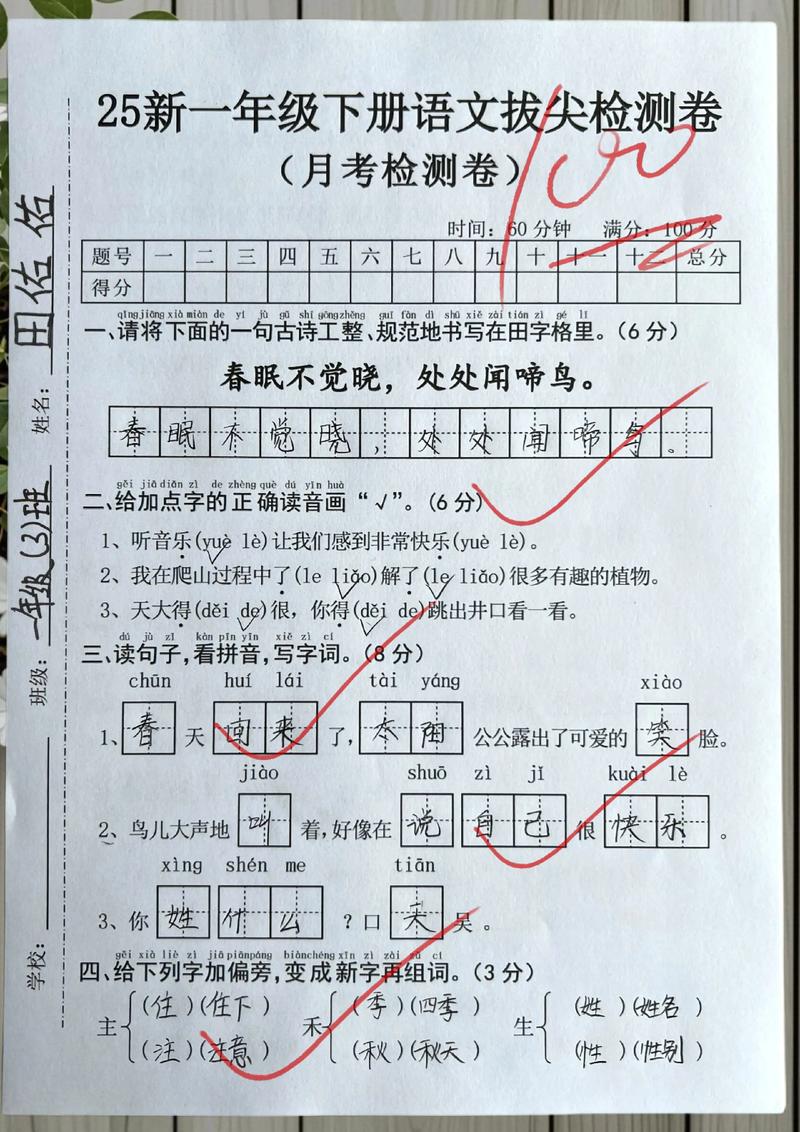 25新一年级下册语文拔尖检测卷
（月考检测卷）
100
时间：60分钟 满分：100分
题号 一 二 三 四 五 六 七 八 九 十 十一 十二 总分
得分
学校：
班级：一年级(3)班
姓名：田佑佑
qǐng jiāng xià miàn de yí jù gǔ shī gōng zhěng guī fàn dì shū xiě zài tián zì gé lǐ
一、请将下面的一句古诗工整、规范地书写在田字格里。（6分）
春眠不觉晓，处处闻啼鸟。
春眠不觉晓，处处闻啼鸟。
gěi jiā diǎn zì de zhèng què dú yīn huà
二、给加点字的正确读音画“√”。（6分）
1、听音乐(yuè lè)让我们感到非常快乐(yuè lè)。
2、我在爬山过程中了(le liǎo)解了(le liǎo)很多有趣的植物。
3、天大得(děi de)很，你得(děi de)跳出井口看一看。
dú jù zǐ kàn pīn yīn xiě zì cí
三、读句子，看拼音，写字词。（8分）
chūn huí lái tài yáng xiào
1、春天回来了，太阳公公露出了可爱的笑脸。
jiào shuō zì jǐ kuài lè
2、鸟儿大声地叫着，好像在说自己很快乐。
xìng shén me tiān
3、你姓什么？口天吴。
gěi xià liè zì jiā piān páng biàn chéng xīn zì zài zǔ cí
四、给下列字加偏旁，变成新字再组词。（3分）
主 (住)(住下) 禾 (季)(四季) 生 (姓)(姓名)
(注)(注意) (秋)(秋天) (性)(性别)